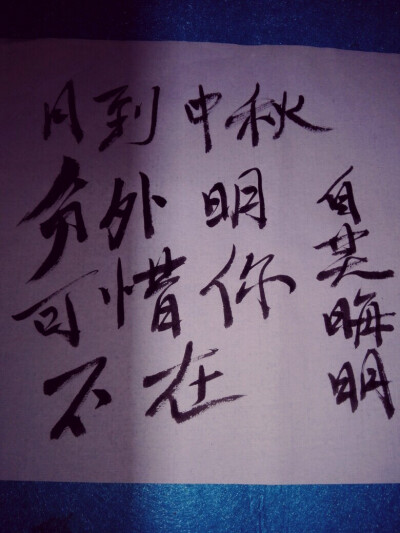 月到中秋
分外明
可惜你
不在
自芸晦明